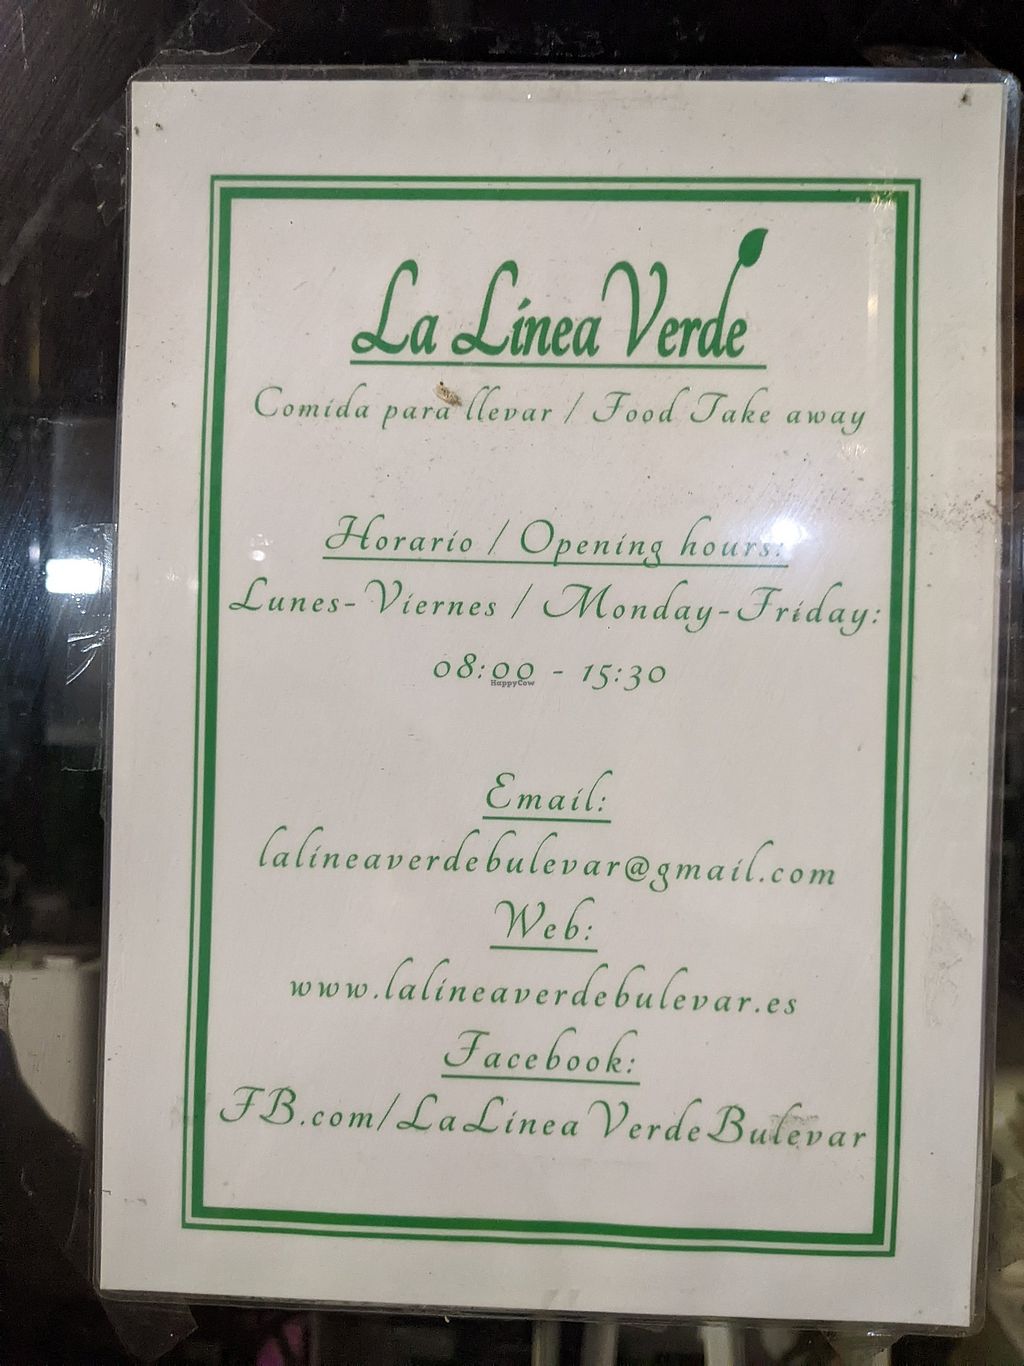 La Línea Verde
Comida para llevar / Food Take away
Horario / Opening hours:
Lunes-Viernes / Monday-Friday:
08:00 - 15:30
HappyCow
Email:
lalineaverdebulevar@gmail.com
Web:
www.lalineaverdebulevar.es
Facebook:
FB.com/LaLineaVerdeBulevar